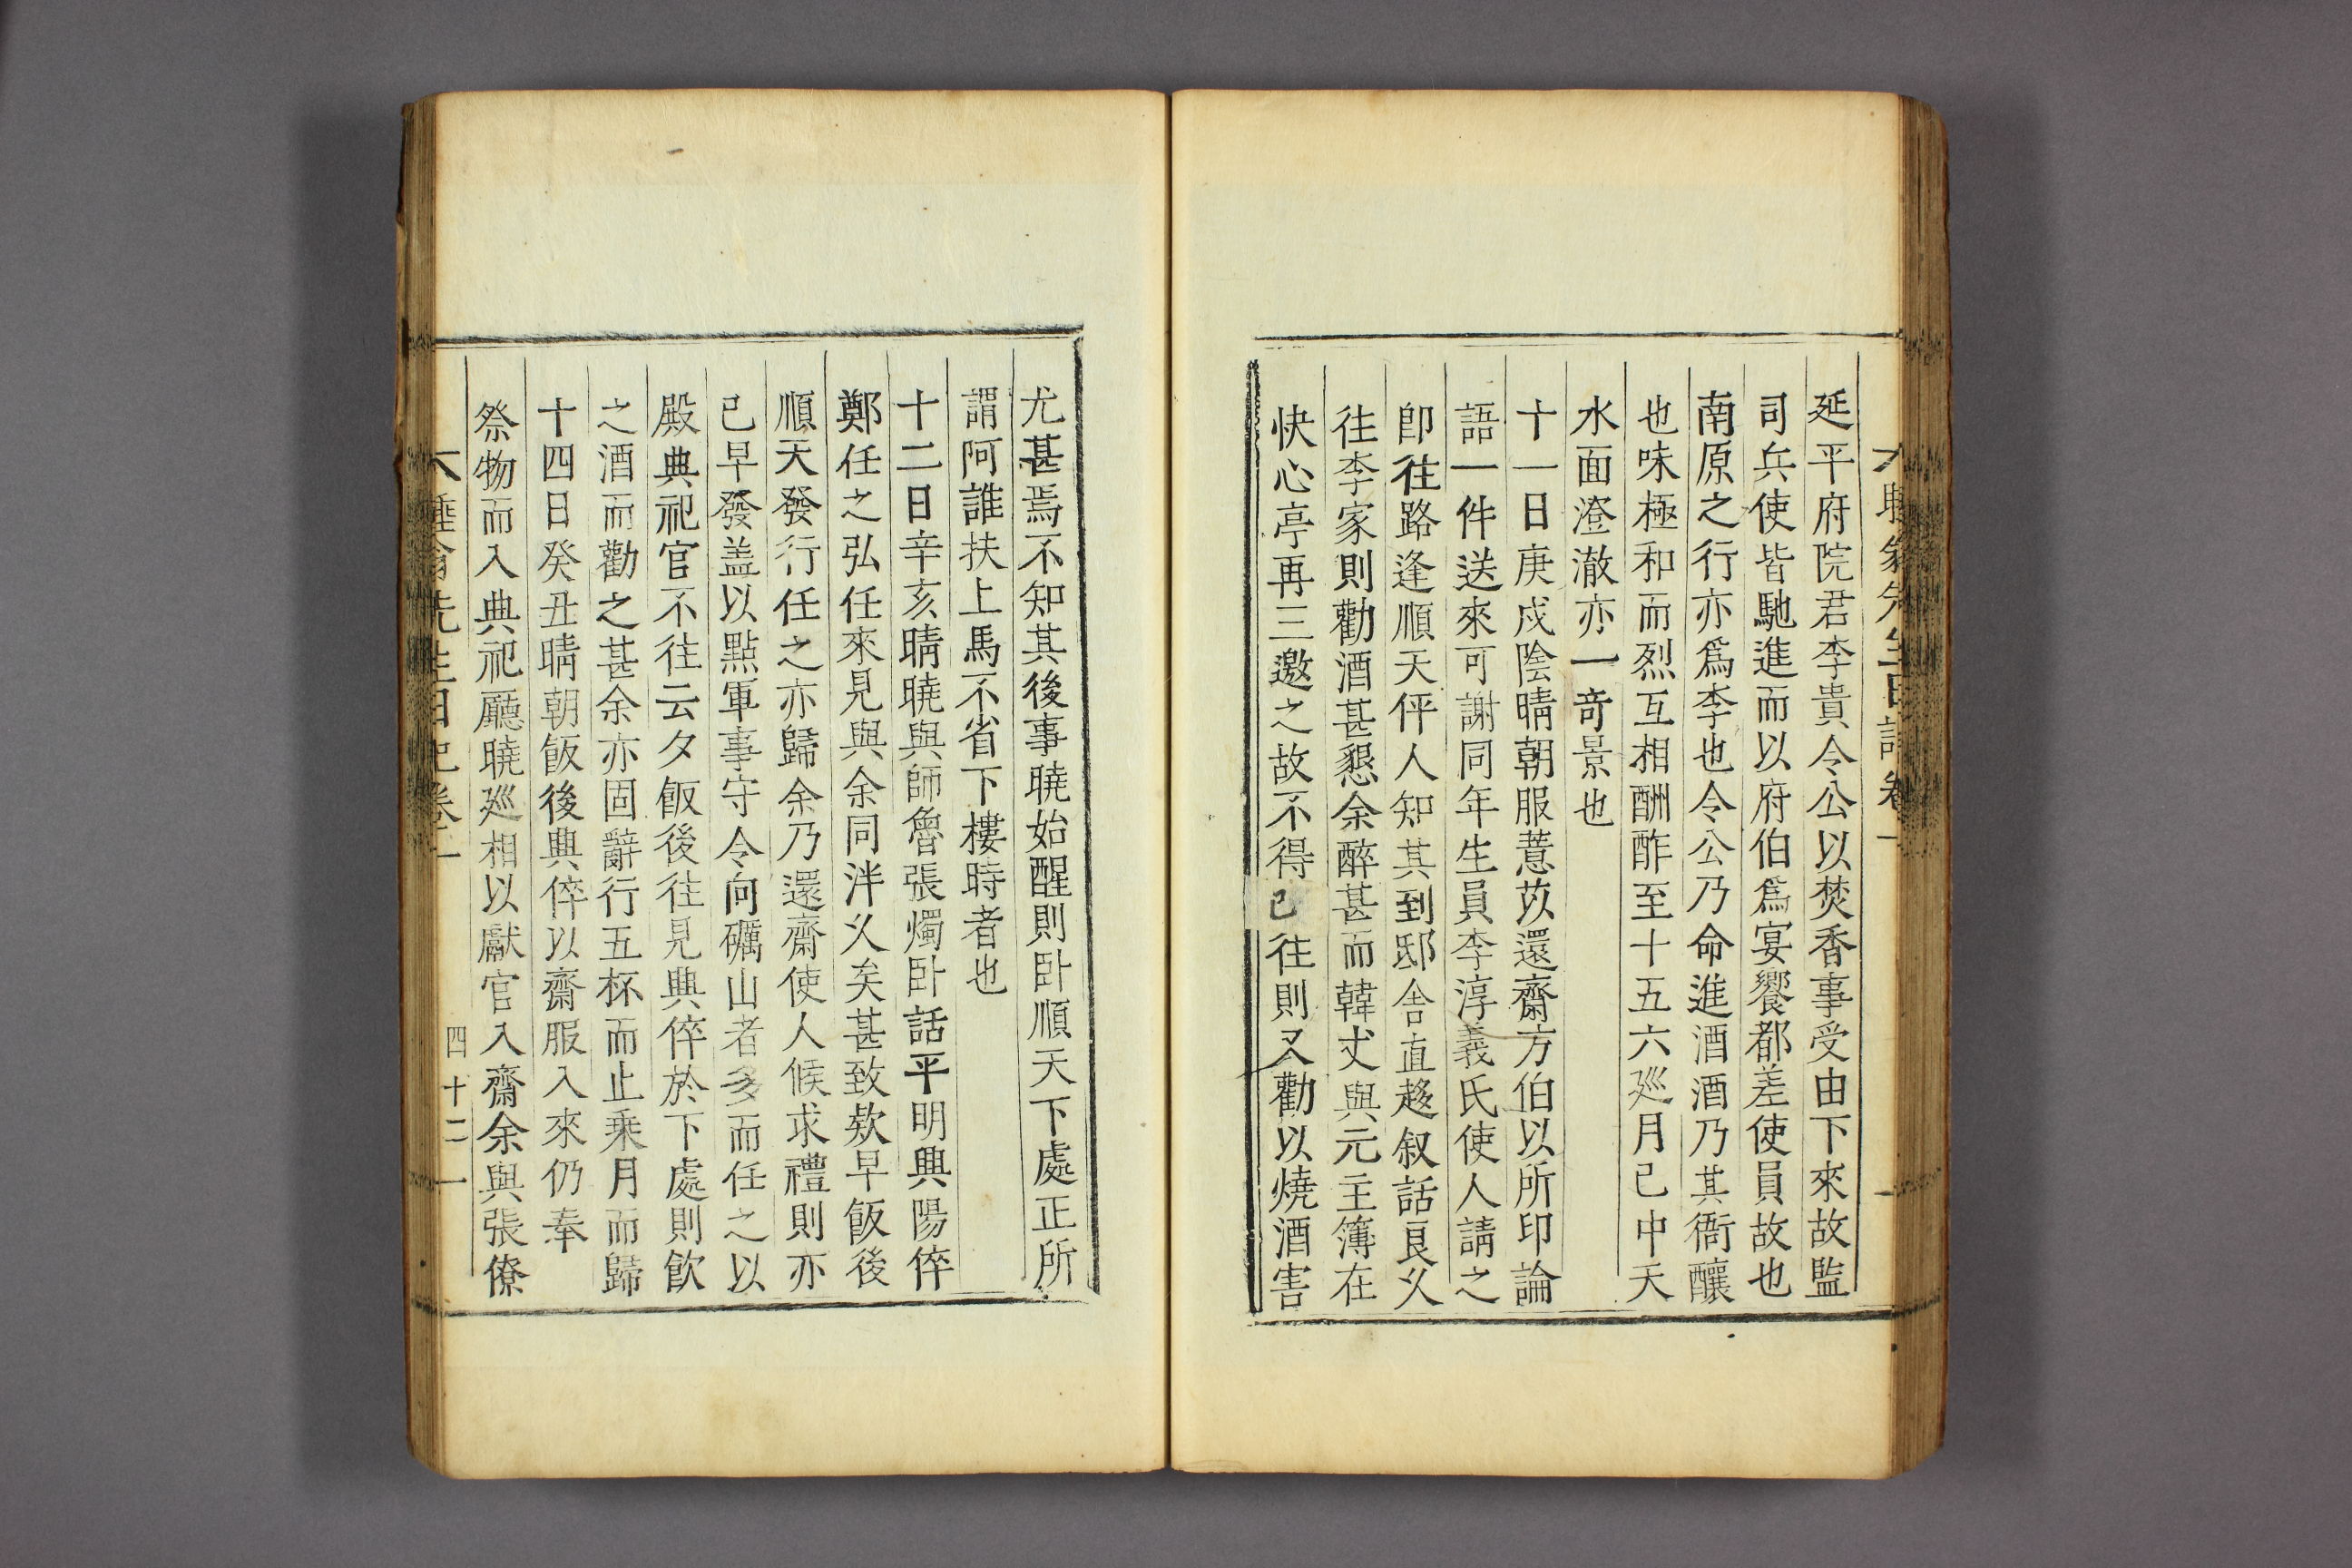 延平府院君李貴令公以焚香事受由下來故監
司兵使皆馳進而以府伯爲宴饗都差使員故也
南原之行亦爲李也令公乃命進酒酒乃其衙釀
也味極和而烈互相酬酢至十五六廵月已中天
水面澄澈亦一奇景也
十一日庚戌陰晴朝服薏苡還齋方伯以所印論
語一件送來可謝同年生員李淳義氏使人請之
卽往路逢順天伻人知其到邸舍直趍叙話良久
往李家則勸酒甚懇余醉甚而韓丈與元主簿在
快心亭再三邀之故不得已往則又勸以燒酒害
尤甚焉不知其後事曉始醒則卧順天下處正所
謂阿誰扶上馬不省下樓時者也
十二日辛亥晴曉與師魯張燭卧話平明興陽倅
鄭任之弘任來見與余同泮久矣甚致欵早飯後
順天發行任之亦歸余乃還齋使人候求禮則亦
已早發盖以點軍事守令向礪山者多而任之以
殿典祀官不往云夕飯後往見典倅於下處則飮
之酒而勸之甚余亦固辭行五杯而止乗月而歸
十四日癸丑晴朝飯後典倅以齋服入來仍奉
祭物而入典祀廳曉廵相以獻官入齋余與張僚
四十二